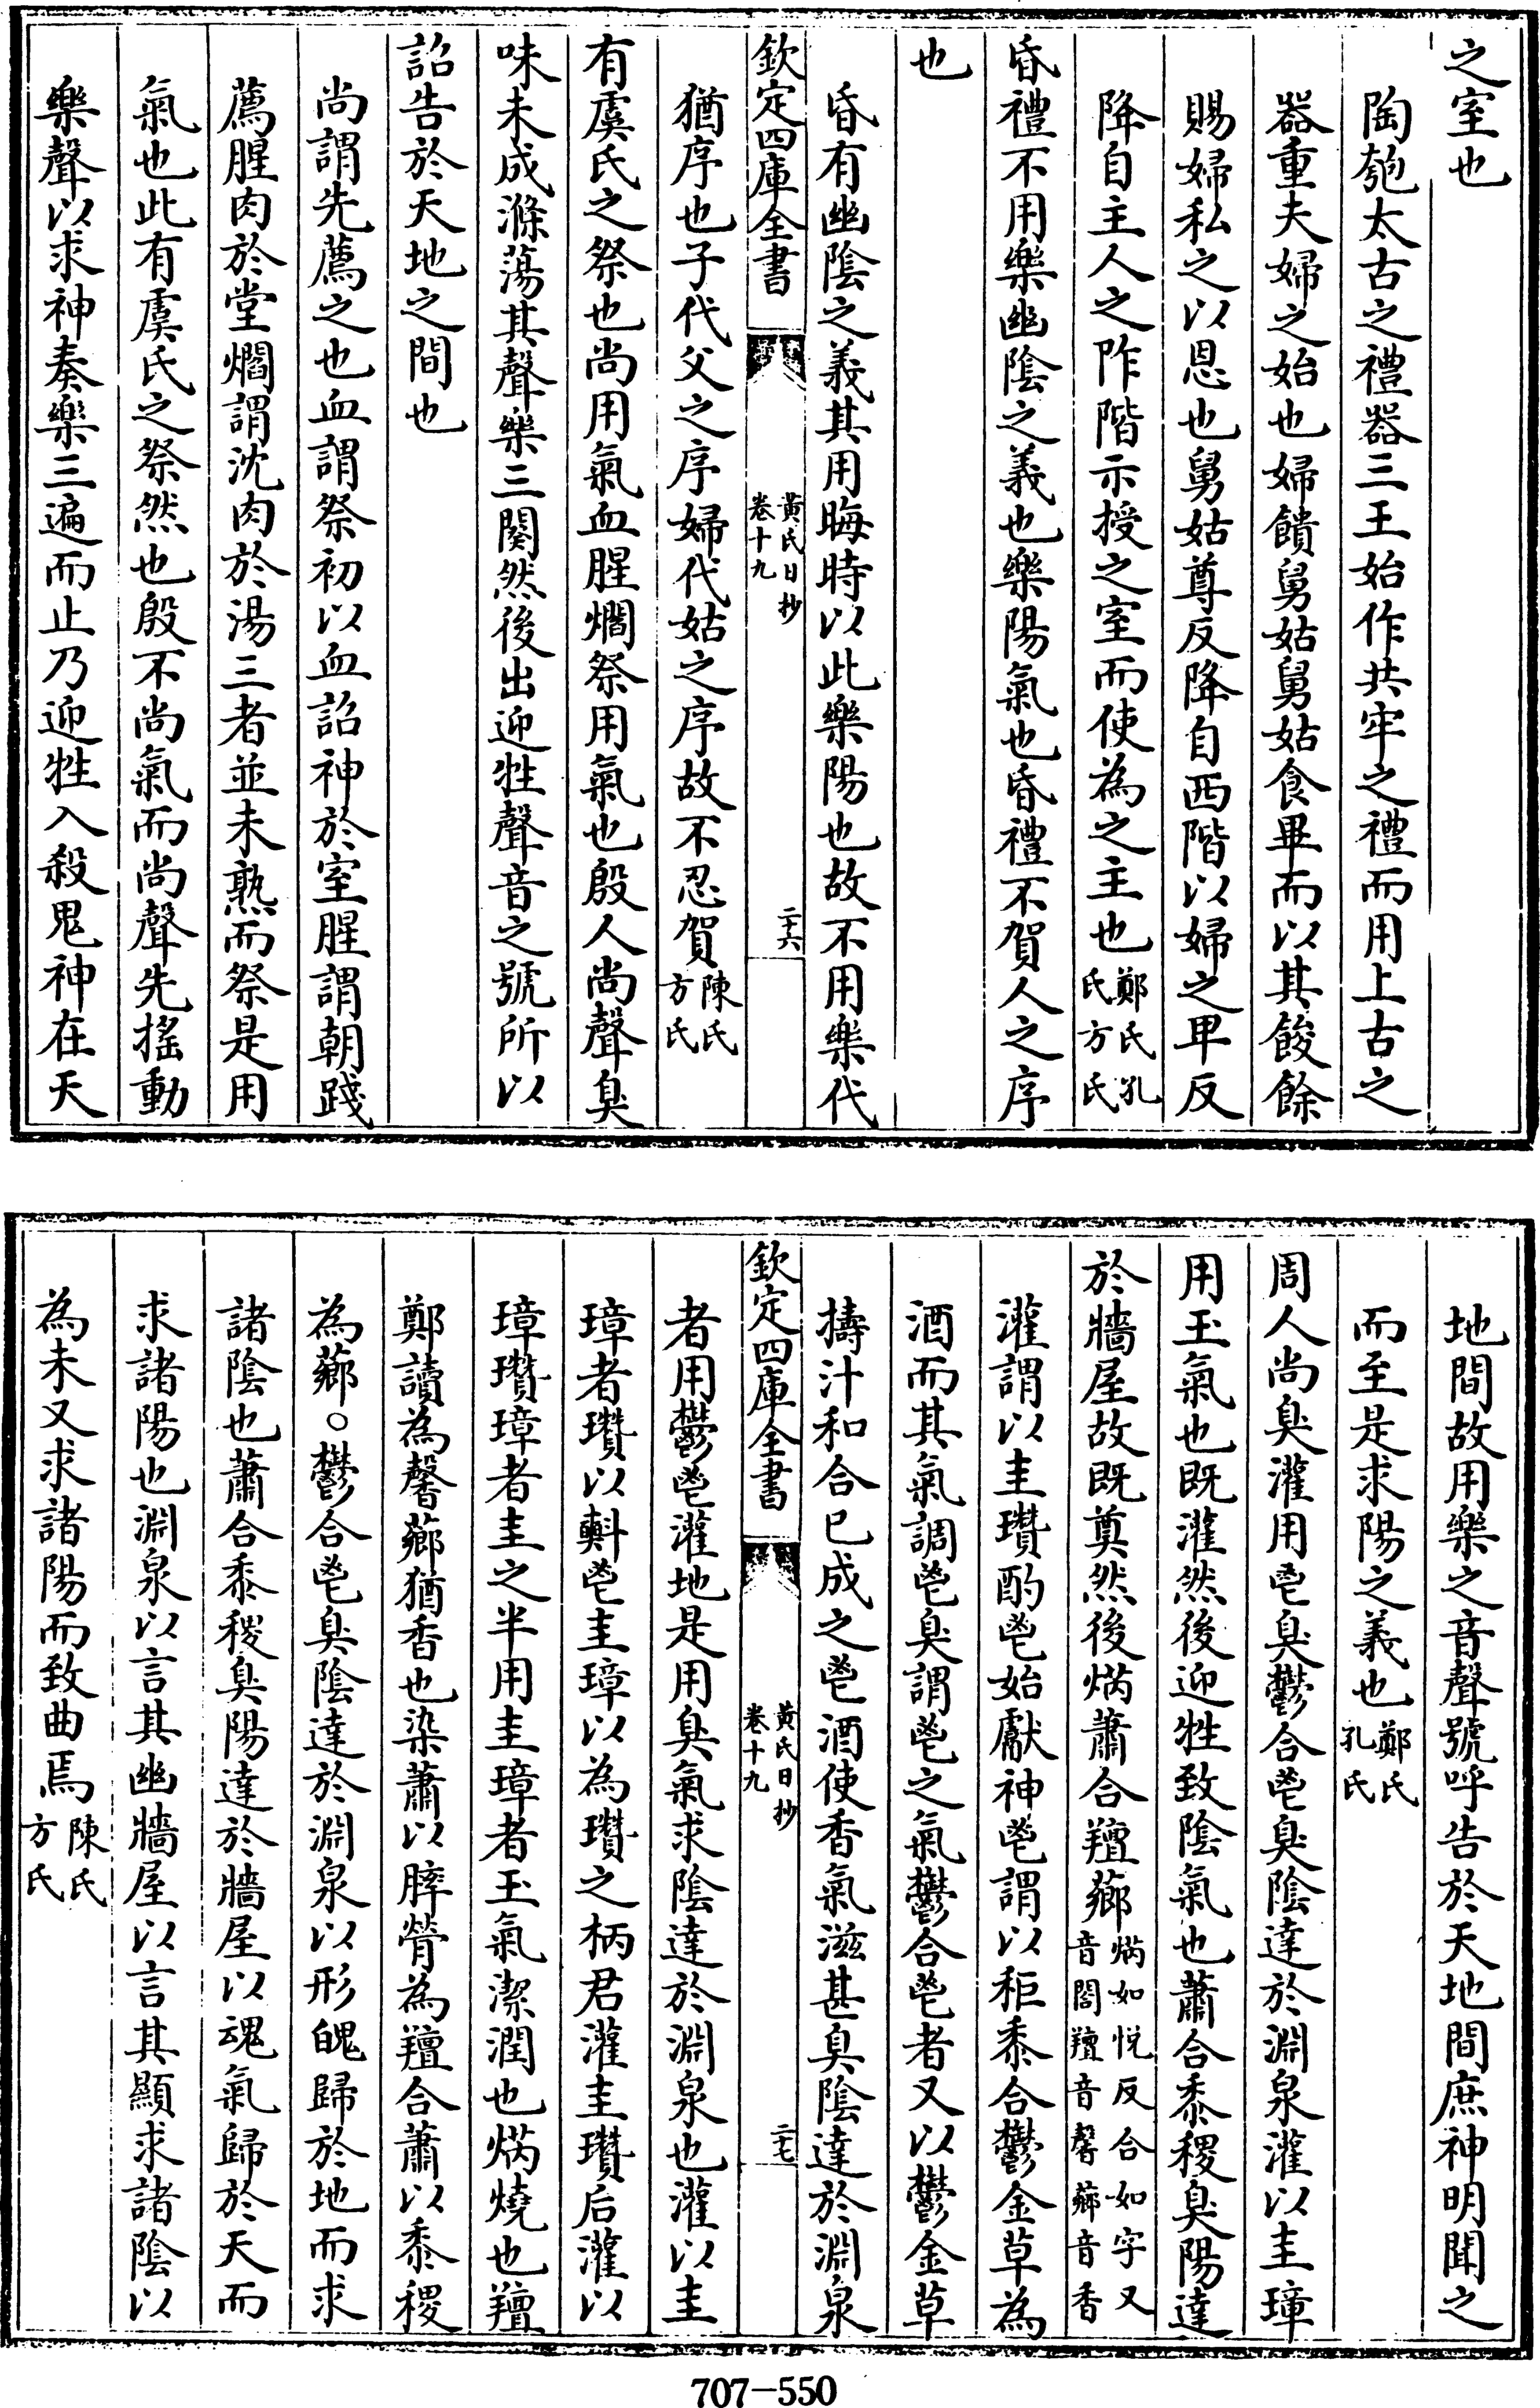 之室也
陶匏太古之禮器三王始作共牢之禮而用上古之
器重夫婦之始也婦饋舅姑舅姑食畢而以其餕餘
賜婦私之以恩也舅姑尊反降自西階以婦之卑反
降自主人之阼階示授之室而使為之主也鄭氏孔氏方氏
昏禮不用樂幽陰之義也樂陽氣也昏禮不賀人之序
也
昏有幽陰之義其用晦時以此樂陽也故不用樂代
欽定四庫全書 黃氏日抄 卷十九 二十六
猶序也子代父之序婦代姑之序故不忍賀陳氏方氏
有虞氏之祭也尚用氣血腥爓祭用氣也殷人尚聲臭
味未成滌蕩其聲樂三闋然後出迎牲聲音之號所以
詔告於天地之間也
尚謂先薦之也血謂祭初以血詔神於室腥謂朝踐
薦腥肉於堂爓謂沈肉於湯三者並未熟而祭是用
氣也此有虞氏之祭然也殷不尚氣而尚聲先搖動
樂聲以求神奏樂三遍而止乃迎牲入殺鬼神在天
地間故用樂之音聲號呼告於天地間庶神明聞之
而至是求陽之義也鄭氏孔氏
周人尚臭灌用鬯臭鬱合鬯臭陰達於淵泉灌以圭璋
用玉氣也既灌然後迎牲致陰氣也蕭合黍稷臭陽達
於牆屋故既奠然後焫蕭合羶薌焫如悅反合如字又音閤羶音馨薌音香
灌謂以圭瓚酌鬯始獻神鬯謂以秬黍合鬱金草為
酒而其氣調鬯臭謂鬯之氣鬱合鬯者又以鬱金草
擣汁和合已成之鬯酒使香氣滋甚臭陰達於淵泉
欽定四庫全書 黃氏日抄 卷十九 二十七
者用鬱鬯灌地是用臭氣求陰達於淵泉也灌以圭
璋者瓚以㪺鬯圭璋以為瓚之柄君灌圭瓚后灌以
璋瓚璋者圭之半用圭璋者玉氣潔潤也焫燒也羶
鄭讀為馨薌猶香也染蕭以膟膋為羶合蕭以黍稷
為薌○鬱合鬯臭陰達於淵泉以形魄歸於地而求
諸陰也蕭合黍稷臭陽達於牆屋以魂氣歸於天而
求諸陽也淵泉以言其幽牆屋以言其顯求諸陰以
為未又求諸陽而致曲焉陳氏方氏
707-550